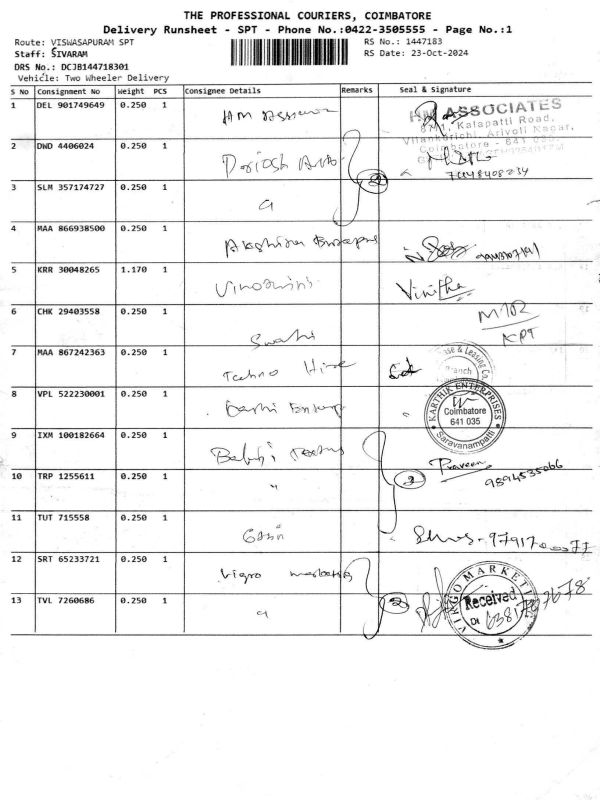 THE PROFESSIONAL COURIERS, COIMBATORE
Delivery Runsheet - SPT - Phone No.:0422-3505555 - Page No.:1
Route: VISWASAPURAM SPT
RS No.: 1447183
Staff: SIVARAM
RS Date: 23-Oct-2024
DRS No.: DCJB144718301
Vehicle: Two Wheeler Delivery
S No Consignment No Weight PCS Consignee Details Remarks Seal & Signature
1 DEL 901749649 0.250 1
HM ASSOCIATES
Kalapatti Road,
Vilankurichi, Arivoli Nagar,
Coimbatore - 641 035
2 DWD 4406024 0.250 1
3 SLM 357174727 0.250 1 2
4 MAA 866938500 0.250 1
5 KRR 30048265 1.170 1 Vinodhini Vinitha
6 CHK 29403558 0.250 1 Swathi
KPT
7 MAA 867242363 0.250 1 Techno Hire
se & Leasing Co.
Branch
8 VPL 522230001 0.250 1
KARTHIK ENTERPRISES
Coimbatore
641 035
Saravanampatti
9 IXM 100182664 0.250 1 Balaji
Praveen
9894535066
10 TRP 1255611 0.250 1 " 2
11 TUT 715558 0.250 1
12 SRT 65233721 0.250 1 Virgo Marketing
13 TVL 7260686 0.250 1 2
VIRGO MARKETING
Received